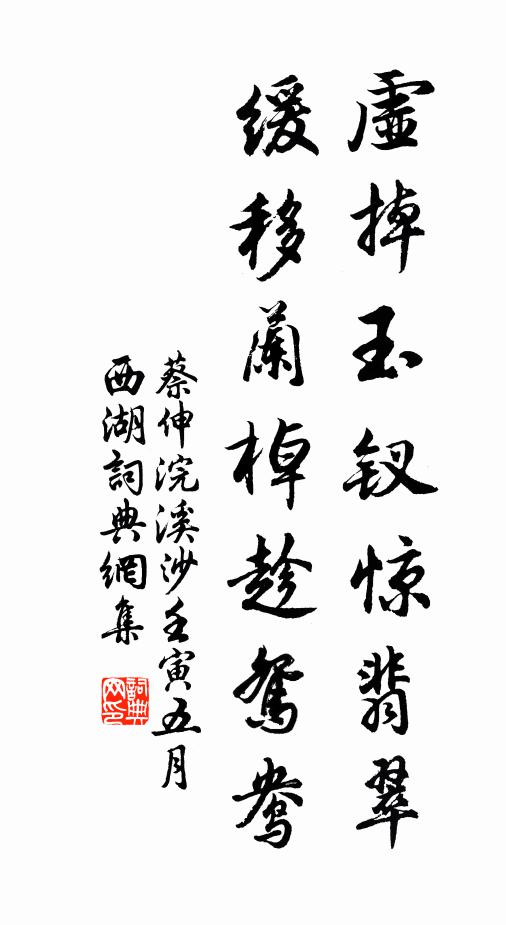 虛掉玉釵惊翡翠
緩移蘭棹趁鴛鴦
蔡伸浣溪沙壬寅五月
西湖詞典網集
詞典
网印